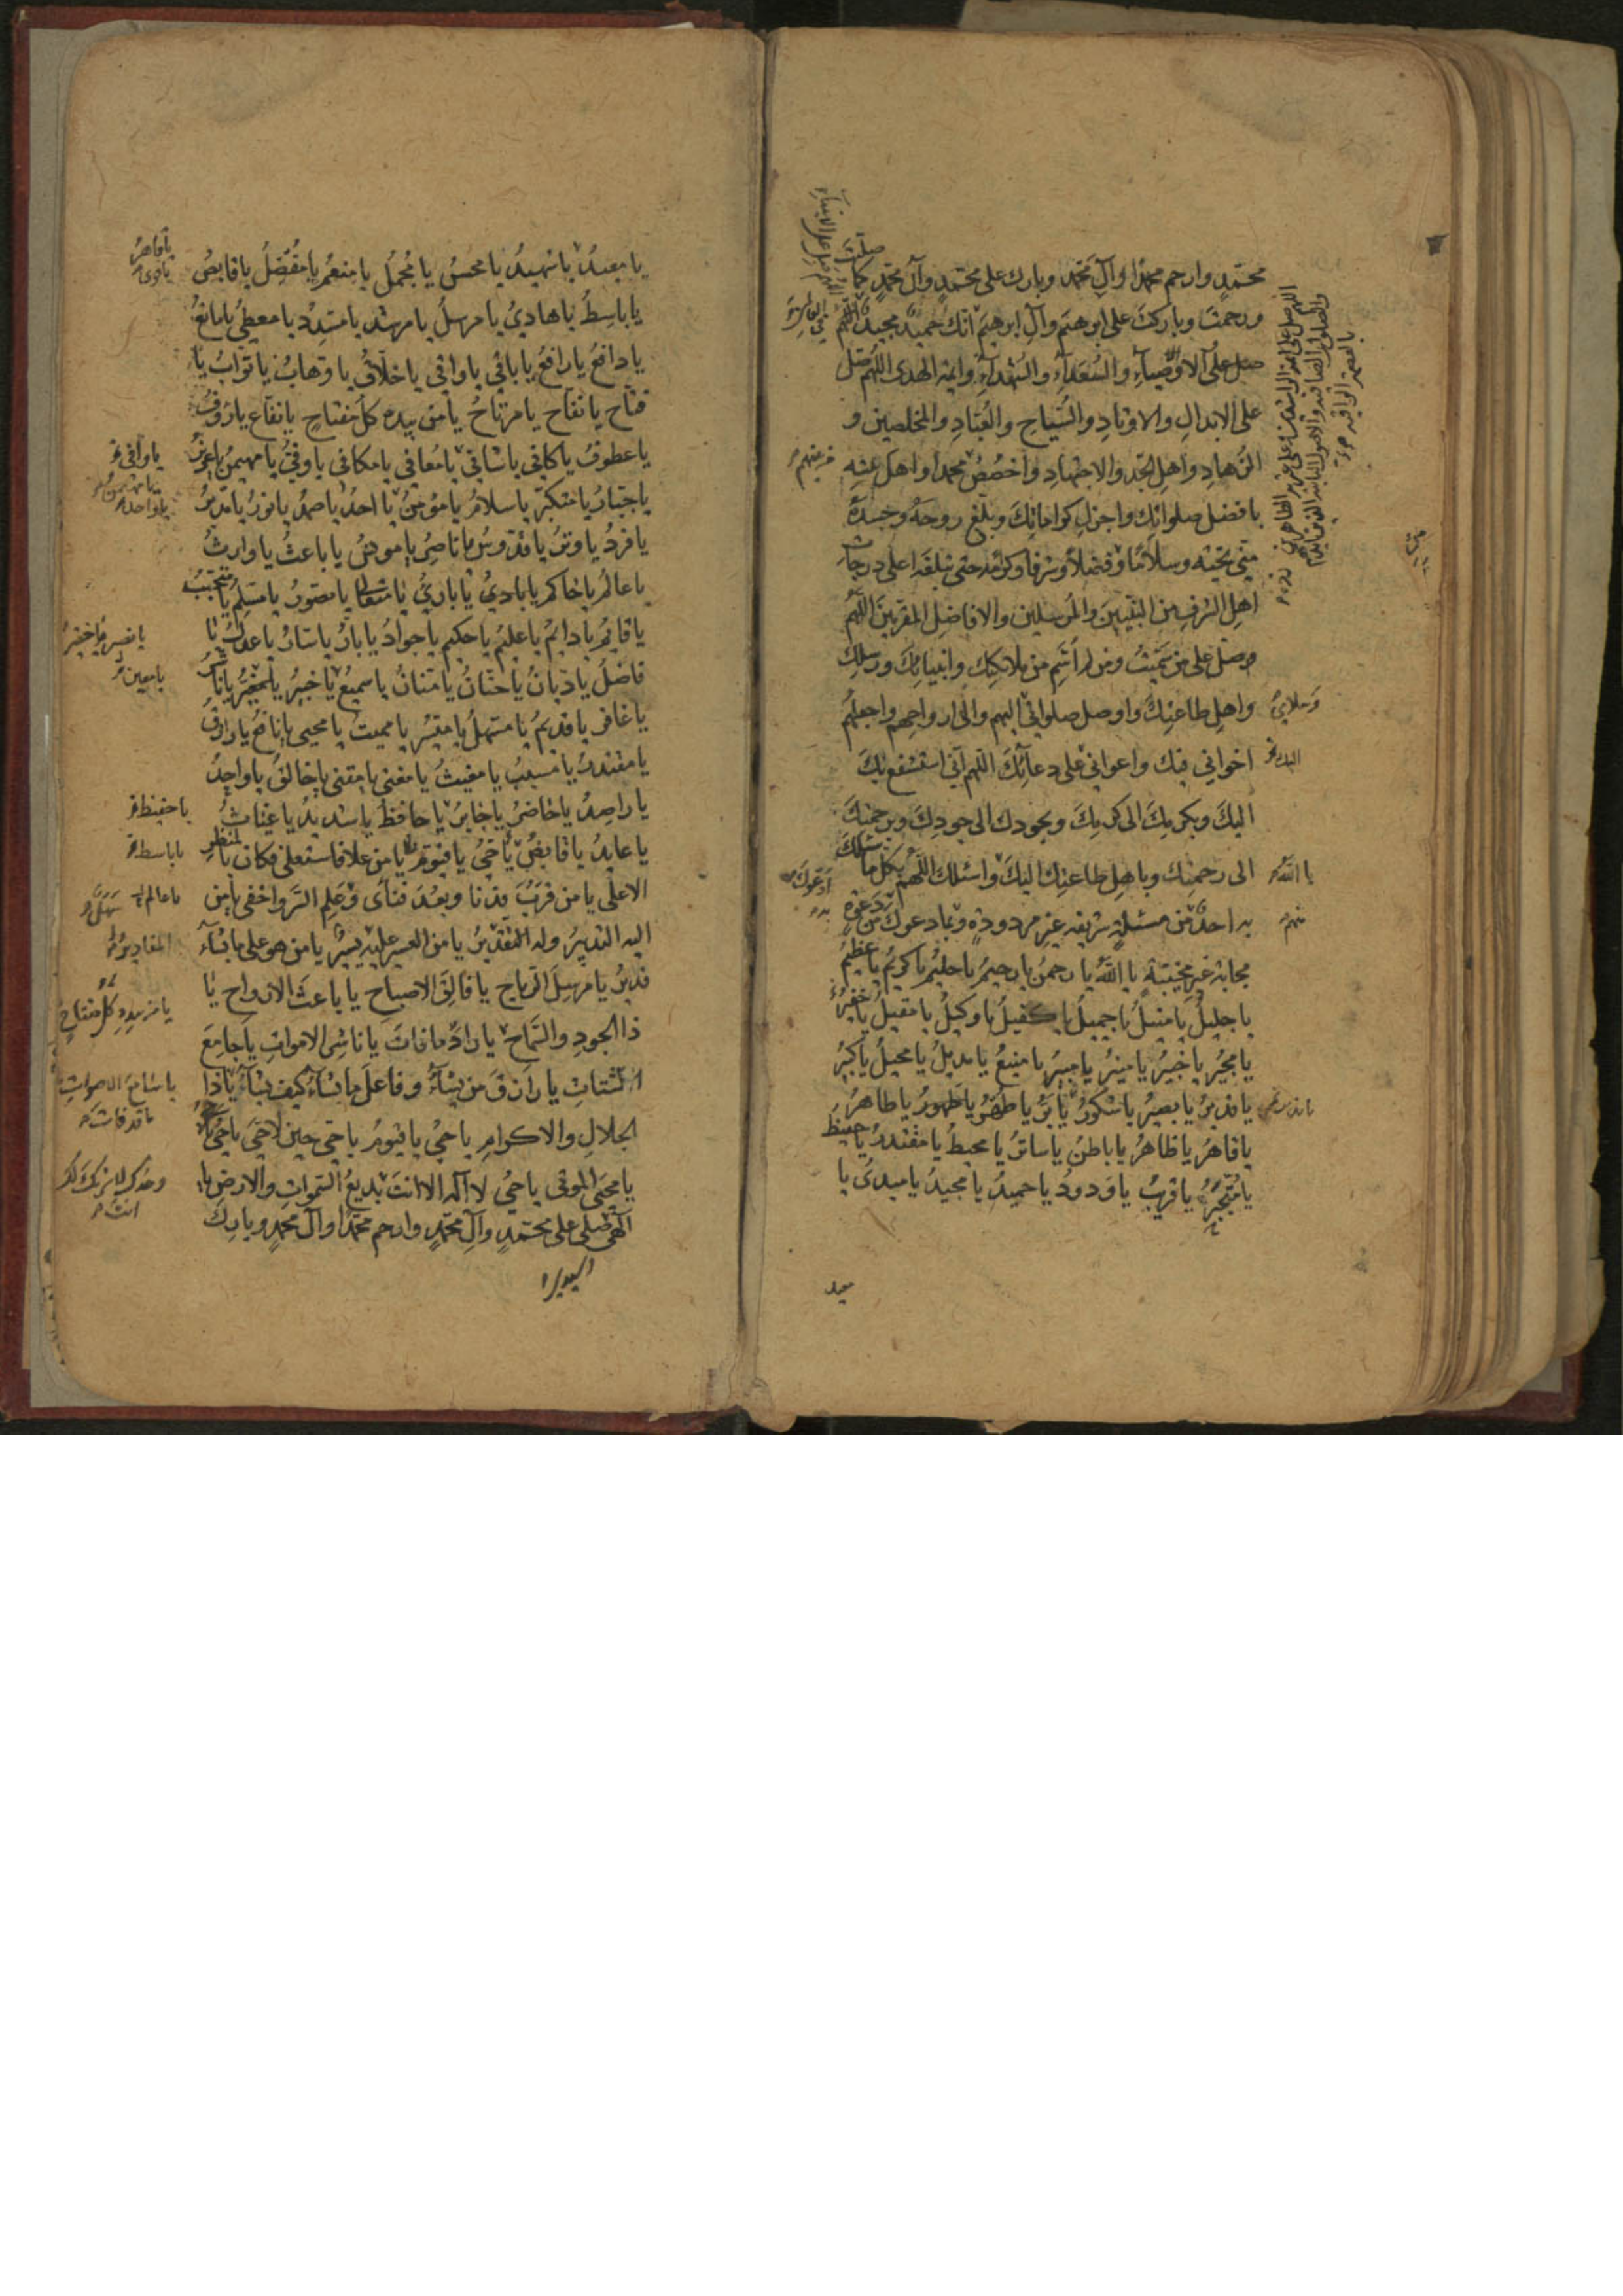 محمّدٍ وارحم محمّدًا وآلِ محمّد وبارك على محمّدٍ وآل محمّدٍ كما صلّيتَ
ورحمتَ وباركتَ على ابرهيمَ وآلِ ابرهيمَ انّك حميدٌ مجيدٌ اللّهمّ
صلّ على الاوصياءِ والسُّعَداءِ والشهداءِ وايمّة الهدى اللّهم صلّ
على الابدالِ والاوتادِ والسُّيّاحِ والعُبّادِ والمخلصين و
الزّهادِ واهلِ الجّدِ والاجتهادِ واخصُص محمّدًا واهلَ
بافضل صلواتِك واجزلِ كراماتِكَ وبلّغ روحَهُ وجسدَهُ
منّي تحيّة وسلامًا وزده فضلاً وشرفًا وكرمًا حتّى تبلّغه اعلى درجات
اهل الشرفِ من النبيّينَ والمرسلين والافاضلِ المقرّبينَ اللّهم
وصلّ على من سمّيتُ ومن لم اُسَمِّ من ملائكتِك وانبيائِكَ ورسلِك
واهلِ طاعتِكَ واوصل صلواتي اليهم والى ارواحِهم واجعلهم
اخواني فيك واعواني على دعائِكَ اللّهم انّي استشفع بكَ
اليكَ وبكرمِكَ الى كرمِكَ وبجودك الى جودِكَ وبرحمتكَ
الى رحمتِك وباهلِ طاعتِك اليكَ واسئلك اللّهم بكلّ ما سئلكَ
به احدٌ من مسئلةٍ شريفه غيرِ مردودةٍ وبما دعوك من دعوةٍ
مجابة غير مخيّبة يا اللهُ يا رحمنُ يا رحيمُ يا حليمُ يا كريمُ يا عظيمُ
يا جليلُ يا منيلُ يا جميلُ يا كفيلُ يا وكيلُ يا مقيلُ يا
يا مجيرُ يا خبيرُ يا منيرُ يا مبيرُ يا منيعُ يا مديلُ يا محيلُ يا كبيرُ
يا قديرُ يا بصيرُ يا شكورُ يا بَرُّ يا طُهرُ يا طَهورُ يا طاهرُ
يا قاهرُ يا ظاهرُ يا باطنُ يا ساترُ يا محيطُ يا مقتدرُ يا حفيظُ
يا متجبّرُ يا قريبُ يا ودودُ يا حميدُ يا مجيدُ يا مبدئُ يا
معيد
يا معيدُ يا شهيدُ يا محسنُ يا مُجملُ يا منعمُ يا مُفضِلُ يا قابضُ
يا باسِطُ يا هاديُ يا مرسلُ يا مرشد يا مسَدِّد يا معطيُ يا مانعُ
يا دافعُ يا رافعُ يا باقي يا واقي يا خلّاقُ يا وهابُ يا توّابُ يا
فتّاح يا نفّاح يا مرتاحُ يا من بيده كلّ مفتاحٍ يا نفّاع يا رَؤُفُ
يا عطوفُ يا كافي يا شافي يا مُعافي يا مكافي يا وفيُّ يا مهيمنُ يا عزيزُ
يا جبّارُ يا متكبّر يا سلامُ يا مؤمنُ يا احدُ يا صمدُ يا نورُ يا مدبّرُ
يا فردُ يا وترُ يا قدّوسُ يا ناصرُ يا مونسُ يا باعثُ يا وارثُ
يا عالمُ يا حاكمُ يا باديُ يا بارئُ يا متعالُ يا مصوّرُ يا مسلِّمُ يا متحبّبُ
يا قايمُ يا دايمُ يا عليمُ يا حكيم يا جوادُ يا بارُّ يا سارُّ يا عدلُ يا
فاضلُ يا ديّانُ يا حنّانُ يا منّانُ يا سميعُ يا خبيرُ يا مغيّرُ يا ناشرُ
يا غافر يا قديمُ يا مسهّلُ يا ميسّرُ يا مميت يا محيي يا نافعُ يا رازقُ
يا مقتدرُ يا مسبّبُ يا مغيثُ يا مغني يا مقني يا خالقُ يا واحدُ
يا راصِدُ يا حاضرُ يا جابرُ يا حافظُ يا شديدُ يا غياثُ
يا عايدُ يا قابضُ يا حيُّ يا قيّوم يا من علا فاستعلى فكان بالمنظرِ
الاعلى يا من قرُبَ فدنا وبعُدَ فنأى وعَلِم السّرَّ واخفى يا من
اليه التدبيرُ وله المقاديرُ يا من العسير عليه يسيرٌ يا من هو على ما يشاءُ
قديرُ يا مرسِلَ الرّياحِ يا فالقَ الاصباحِ يا باعثَ الارواحِ يا
ذا الجودِ والسّماحِ يا رادَّ ما فاتَ يا ناشر الامواتِ يا جامعَ
الشتاتِ يا رازقَ من يشاءُ وفاعلَ ما يشاءُ كيف يشاءُ يا ذا
الجلالِ والاكرامِ يا حيُّ يا قيّومُ يا حيّ حين لا حيَّ يا حيُّ
يا محييَ الموتى يا حيُّ لا اله الا انتَ بديعُ السّمواتِ والارضِ يا
الهي صلّ على محمّدٍ وآلِ محمّدٍ وارحم محمّدًا وآل محمّدٍ وبارك
يا قاهرُ
يا واقيُ
يا واحدُ
يا معينُ
يا حفيظ
يا باسط
المقادير
يا من بيدهِ كلُّ مفتاح
يا سامعَ الاصواتِ
وحدك لا شريك لك